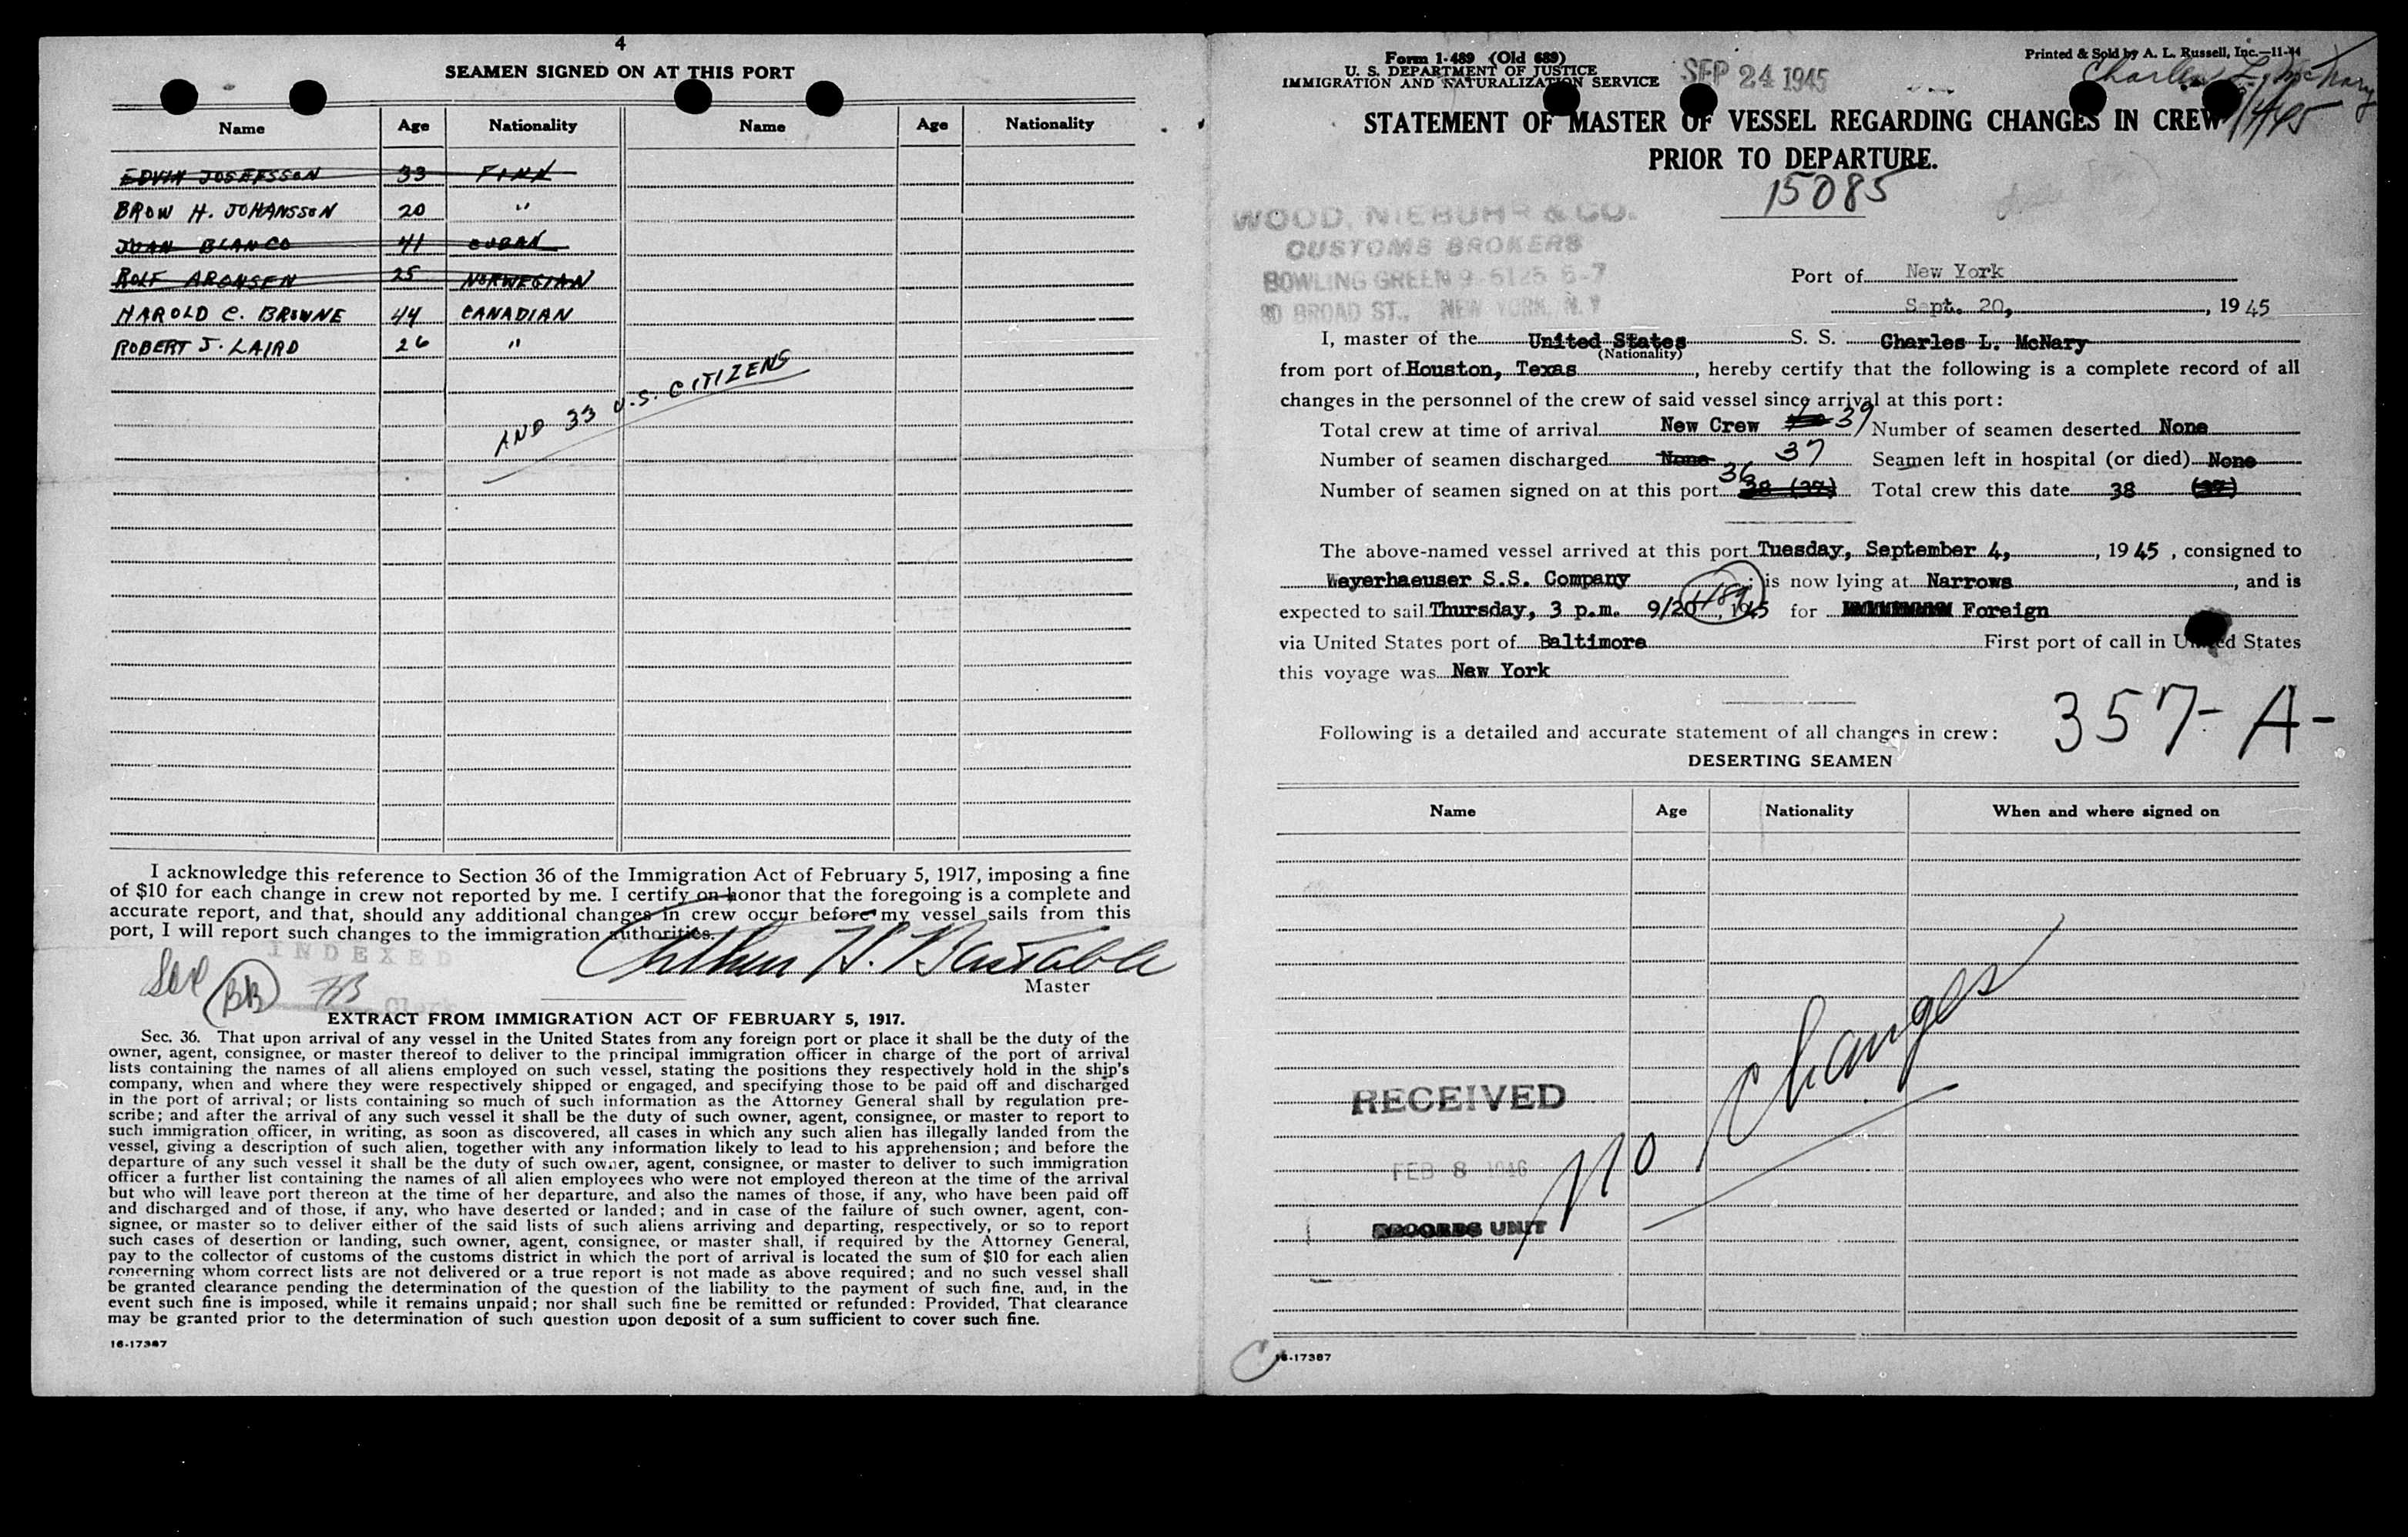 4
SEAMEN SIGNED ON AT THIS PORT
Name Age Nationality Name Age Nationality
EDVIN JOSEFSSON 33 FINN
BROW H. JOHANSSON 20 "
JUAN BLANCO 41 CUBAN
ROLF ARONSEN 25 NORWEGIAN
HAROLD C. BROWNE 44 CANADIAN
ROBERT J. LAIRD 26 "
AND 33 U.S. CITIZENS
I acknowledge this reference to Section 36 of the Immigration Act of February 5, 1917, imposing a fine
of $10 for each change in crew not reported by me. I certify on honor that the foregoing is a complete and
accurate report, and that, should any additional changes in crew occur before my vessel sails from this
port, I will report such changes to the immigration authorities.
INDEXED
Arthur H. Bastable
BB Clerk
Master
EXTRACT FROM IMMIGRATION ACT OF FEBRUARY 5, 1917.
Sec. 36. That upon arrival of any vessel in the United States from any foreign port or place it shall be the duty of the
owner, agent, consignee, or master thereof to deliver to the principal immigration officer in charge of the port of arrival
lists containing the names of all aliens employed on such vessel, stating the positions they respectively hold in the ship's
company, when and where they were respectively shipped or engaged, and specifying those to be paid off and discharged
in the port of arrival; or lists containing so much of such information as the Attorney General shall by regulation pre-
scribe; and after the arrival of any such vessel it shall be the duty of such owner, agent, consignee, or master to report to
such immigration officer, in writing, as soon as discovered, all cases in which any such alien has illegally landed from the
vessel, giving a description of such alien, together with any information likely to lead to his apprehension; and before the
departure of any such vessel it shall be the duty of such owner, agent, consignee, or master to deliver to such immigration
officer a further list containing the names of all alien employees who were not employed thereon at the time of the arrival
but who will leave port thereon at the time of her departure, and also the names of those, if any, who have been paid off
and discharged and of those, if any, who have deserted or landed; and in case of the failure of such owner, agent, con-
signee, or master so to deliver either of the said lists of such aliens arriving and departing, respectively, or so to report
such cases of desertion or landing, such owner, agent, consignee, or master shall, if required by the Attorney General,
pay to the collector of customs of the customs district in which the port of arrival is located the sum of $10 for each alien
concerning whom correct lists are not delivered or a true report is not made as above required; and no such vessel shall
be granted clearance pending the determination of the question of the liability to the payment of such fine, and, in the
event such fine is imposed, while it remains unpaid; nor shall such fine be remitted or refunded: Provided, That clearance
may be granted prior to the determination of such question upon deposit of a sum sufficient to cover such fine.
16-17387
Form I-489 (Old 689)
U. S. DEPARTMENT OF JUSTICE
IMMIGRATION AND NATURALIZATION SERVICE
SEP 24 1945
Printed & Sold by A. L. Russell, Inc.—11-44
Charles L. McNary
STATEMENT OF MASTER OF VESSEL REGARDING CHANGES IN CREW
PRIOR TO DEPARTURE.
15085
WOOD, NIEBUHR & CO.
CUSTOMS BROKERS
BOWLING GREEN 9-5125 6-7
80 BROAD ST., NEW YORK, N.Y
Port of New York
Sept. 20, , 1945
I, master of the United States S. S. Charles L. McNary
(Nationality)
from port of Houston, Texas , hereby certify that the following is a complete record of all
changes in the personnel of the crew of said vessel since arrival at this port:
Total crew at time of arrival New Crew 39 Number of seamen deserted None
Number of seamen discharged None 37 Seamen left in hospital (or died) None
Number of seamen signed on at this port 36 38 (37) Total crew this date 38 (37)
The above-named vessel arrived at this port Tuesday, September 4, , 1945 , consigned to
Weyerhaeuser S.S. Company ; is now lying at Narrows , and is
expected to sail Thursday, 3 p.m. 9/20 , 1945 for Foreign
via United States port of Baltimore First port of call in United States
this voyage was New York
Following is a detailed and accurate statement of all changes in crew:
357-A-
DESERTING SEAMEN
Name Age Nationality When and where signed on
No Changes
RECEIVED
FEB 8 1946
RECORDS UNIT
16-17387